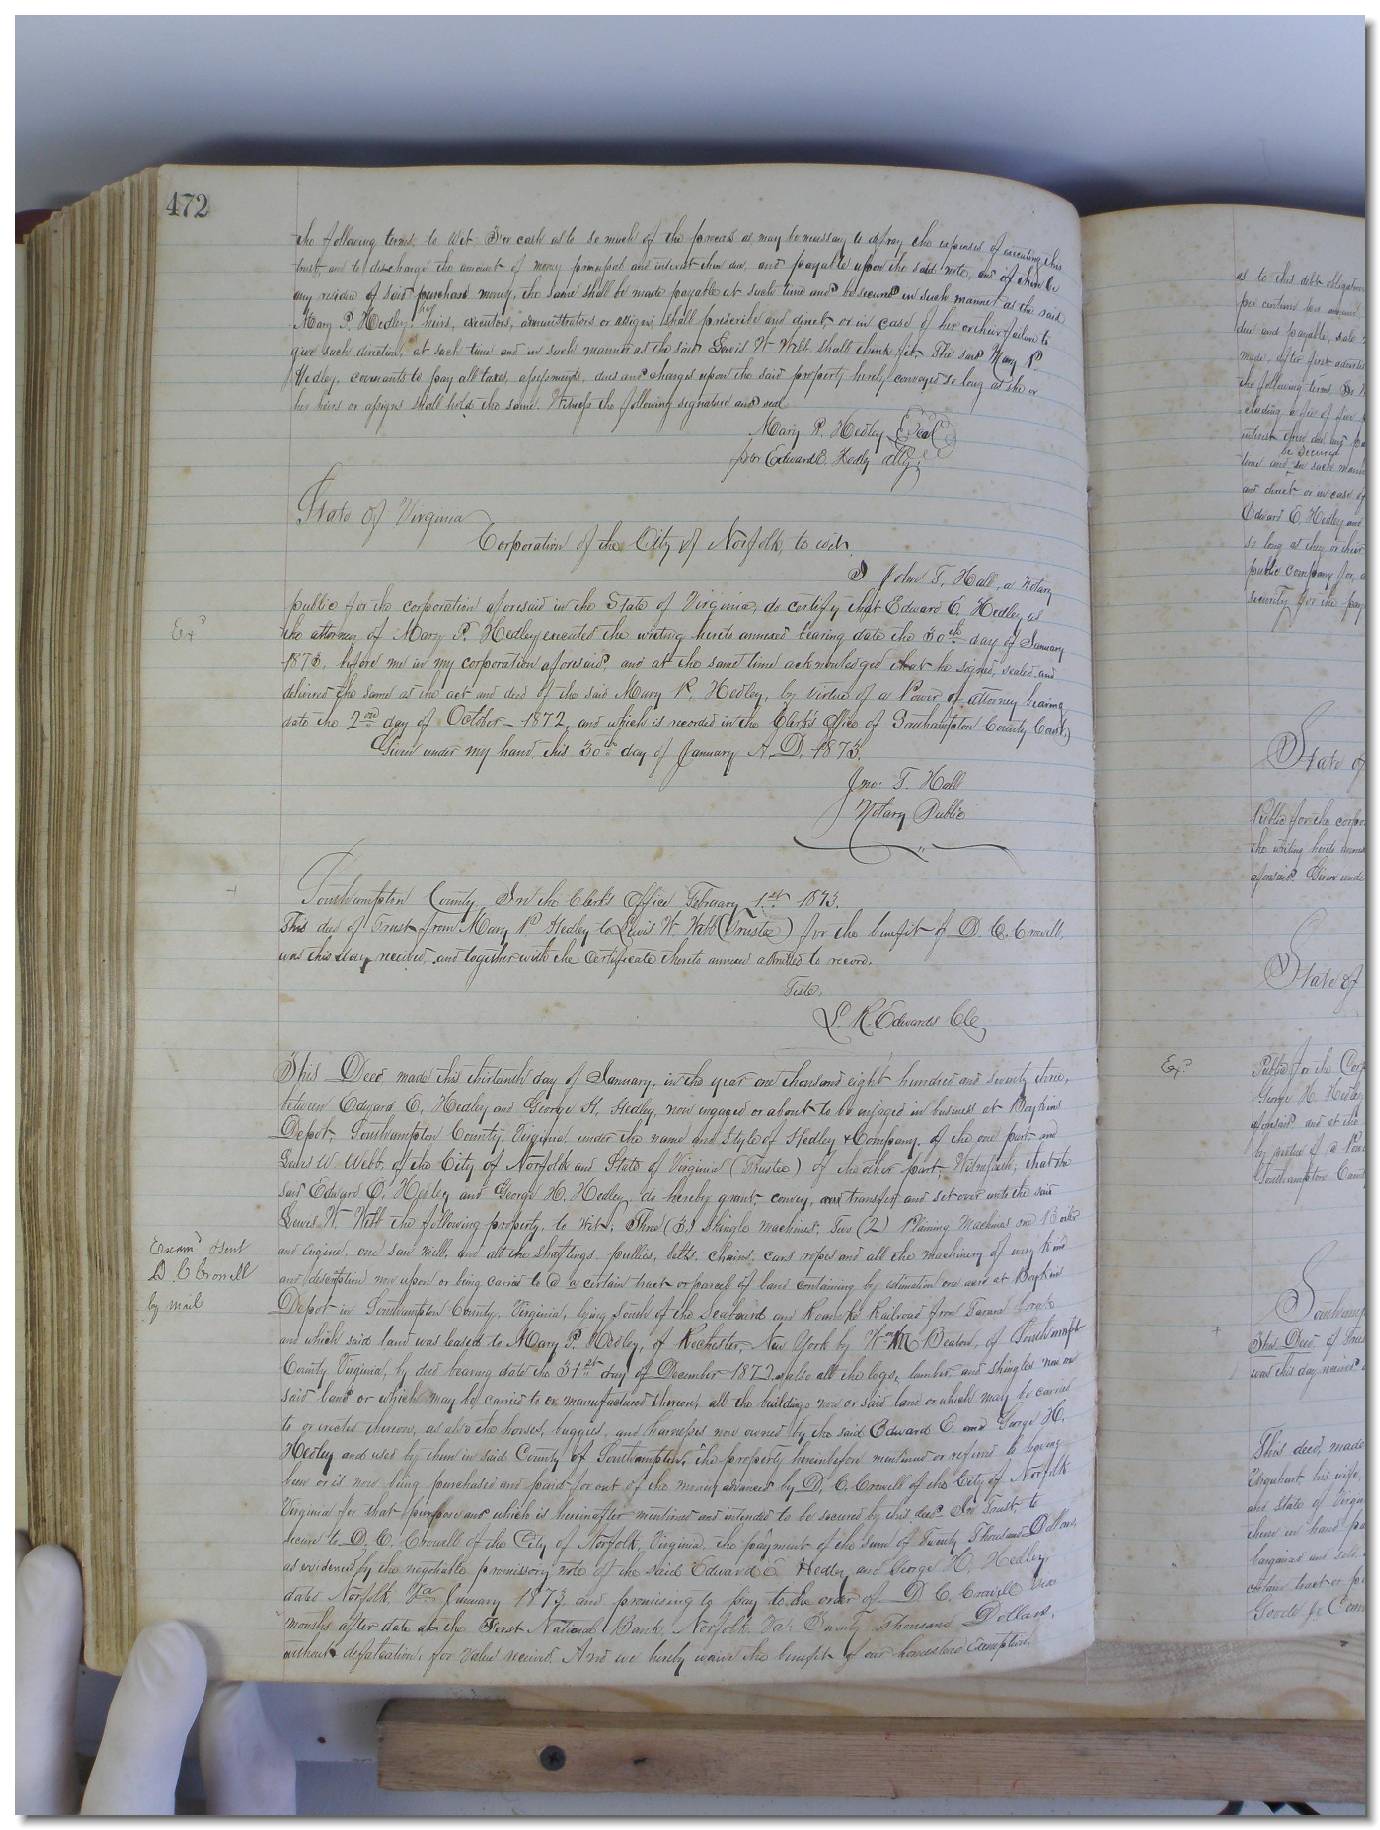 472
the following terms, to wit: For cash as to so much of the proceeds as may be necessary to defray the expenses of executing this
trust, and to discharge the amount of money principal and interest then due, and payable upon the said note, and if there be
any residue of said purchase money, the same shall be made payable at such time and be secured in such manner as the said
Mary P. Hedley, her heirs, executors, administrators or assigns shall prescribe and direct, or in case of her or their failure to
give such direction, at such time and in such manner as the said Lewis W Webb shall think fit. The said Mary P.
Hedley, covenants to pay all taxes, assessments, dues and charges upon the said property hereby conveyed so long as she or
her heirs or assigns shall hold the same. Witness the following signature and seal
Mary P. Hedley Seal
per Edward E. Hedly atty
State of Virginia
Corporation of the City of Norfolk, to wit.
I John T. Hall, a Notary
public for the corporation aforesaid in the State of Virginia, do certify that Edward E. Hedley, as
Exd
the attorney of Mary P. Hedley executed the writing hereto annexed bearing date the 30th day of January
1873, before me in my corporation aforesaid, and at the same time acknowledged that he signed, sealed and
delivered the same as the act and deed of the said Mary P. Hedley, by virtue of a Power of attorney bearing
date the 2nd day of October 1872, and which is recorded in the Clerk's Office of Southampton County Court,
Given under my hand this 30th day of January A.D. 1873.
Jno. T. Hall
Notary Public
Southampton County In the Clerk's Office February 1st 1873.
This deed of Trust from Mary P Hedley to Lewis W. Webb (Trustee) for the benefit of D. C. Crowell,
was this day received, and together with the certificate thereto annexed admitted to record.
Teste.
L. R. Edwards Clk
This Deed made this thirteenth day of January, in the year one thousand eight hundred and seventy three,
between Edward E. Hedley and George H. Hedley, now engaged or about to be engaged in business at Boykins
Depot, Southampton County Virginia, under the name and style of Hedley & Company, of the one part and
Lewis W. Webb, of the City of Norfolk and State of Virginia (Trustee) of the other part, Witnesseth, that the
said Edward E. Hedley and George H. Hedley, do hereby grant, convey, and transfer and set over unto the said
Lewis W. Webb the following property, to wit: Three (3) Shingle machines, Two (2) Planing Machines one Boiler
Examd & sent
D C Crowell
by mail
and Engine, one saw mill, and all the shaftings, pullies, belts, chains, cars ropes and all the machinery of any kind
and description now upon or being carried to a certain tract or parcel of land containing by estimation one acre at Boykins
Depot in Southampton County, Virginia, lying South of the Seaboard and Roanoke Railroad from
and which said land was leased to Mary P. Hedley, of Rochester, New York by Wm M Beaton, of Southampton
County Virginia, by deed bearing date the 31st day of December 1872, also all the logs, lumber, and shingles now on
said land or which may be carried to or manufactured thereon, all the buildings now on said land or which may be carried
to or erected thereon, as also the horses, buggies, and harnesses now owned by the said Edward E. and George H.
Hedley and used by them in said County of Southampton, the property hereinbefore mentioned or referred to having
been or is now being purchased and paid for out of the money advanced by D. C. Crowell of the City of Norfolk
Virginia for that purpose and which is hereinafter mentioned and intended to be secured by this deed In Trust, to
secure to D. C. Crowell of the City of Norfolk, Virginia, the payment of the sum of Twenty Thousand Dollars,
as evidenced by the negotiable promissory note of the said Edward E Hedley and George H. Hedley,
dated Norfolk, Va January 1873 and promising to pay to the order of D. C. Crowell
months after date at the First National Bank, Norfolk Va. Twenty Thousand Dollars,
without defalcation, for value received. And we hereby waive the benefit of our homestead exemption.
as to this debt
due and payable, sale
made, after first
the following terms,
be secured
time and in such
and direct or in case of
Edward E. Hedley and
so long as they or their
public company for,
security for the pay
State of
Public for the corpo
the writing hereto
aforesaid. Given unde
State of
Exd
Public for the Corp
George H. Hedley
aforesaid and at the
by virtue of a Pow
Southampton Count
Southamp
This Deed of Trust
was this day received
This deed, made
Urquhart his wife,
and State of Virgin
them in hand pa
bargained and sold
certain tract or p